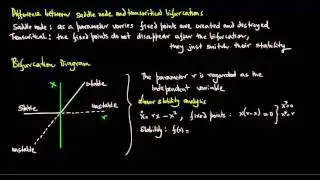 Difference between saddle node and transcritical bifurcations
Saddle node : as a parameter varies fixed points are created and destroyed
Transcritical : the fixed points do not disappear after the bifurcation,
they just switch their stability.
Bifurcation Diagram
The parameter r is regarded as the
independent variable
x
stable
stable
unstable
r
unstable
linear stability analysis
ẋ = rx - x², fixed points : x(r-x) = 0
x* = 0
x* = r
Stability : f(x) =